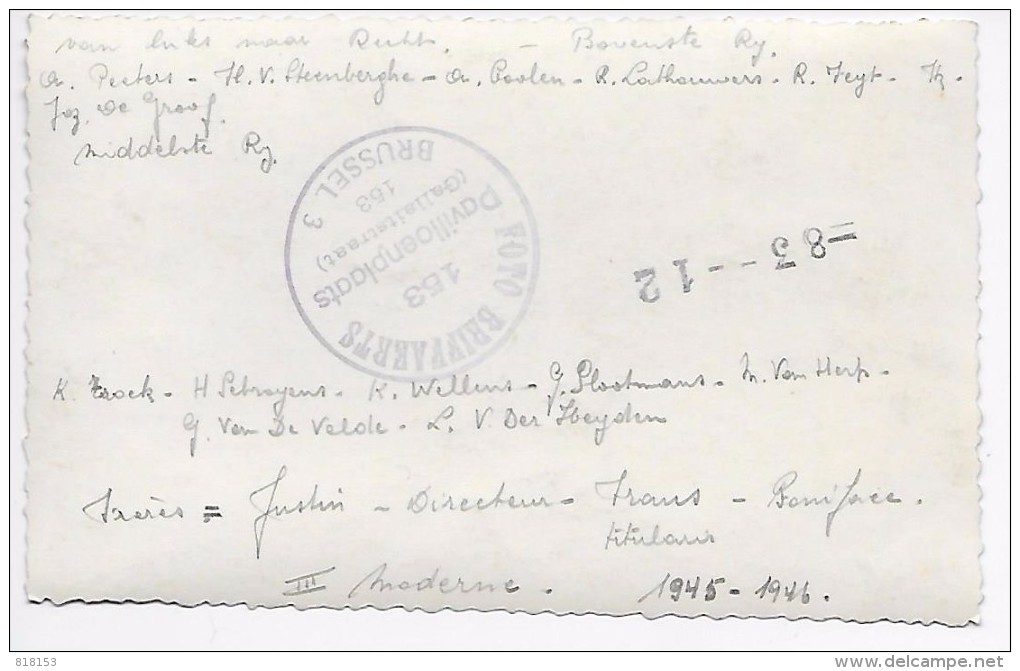 van links naar Recht. - Bovenste Ry.
A. Peeters - H. V. Steenberghe - A. Goolen - R. Lathouwers - R. Feyt -
Joz. De Groof.
Middelste Ry.
FOTO BRIFFAERTS
153
Pavilloenplaats
(Gallaitstraat)
153
BRUSSEL 3
=83--12
K. - H Schroyens - K. Wellens - G. Slootmans - M. Van Herp -
G. Van De Velde - L. V. Der Heyden
Frères = Justin - Directeur - Frans - Boniface.
titularis
III Moderne. 1945 - 1946.
818153
delcampe.net